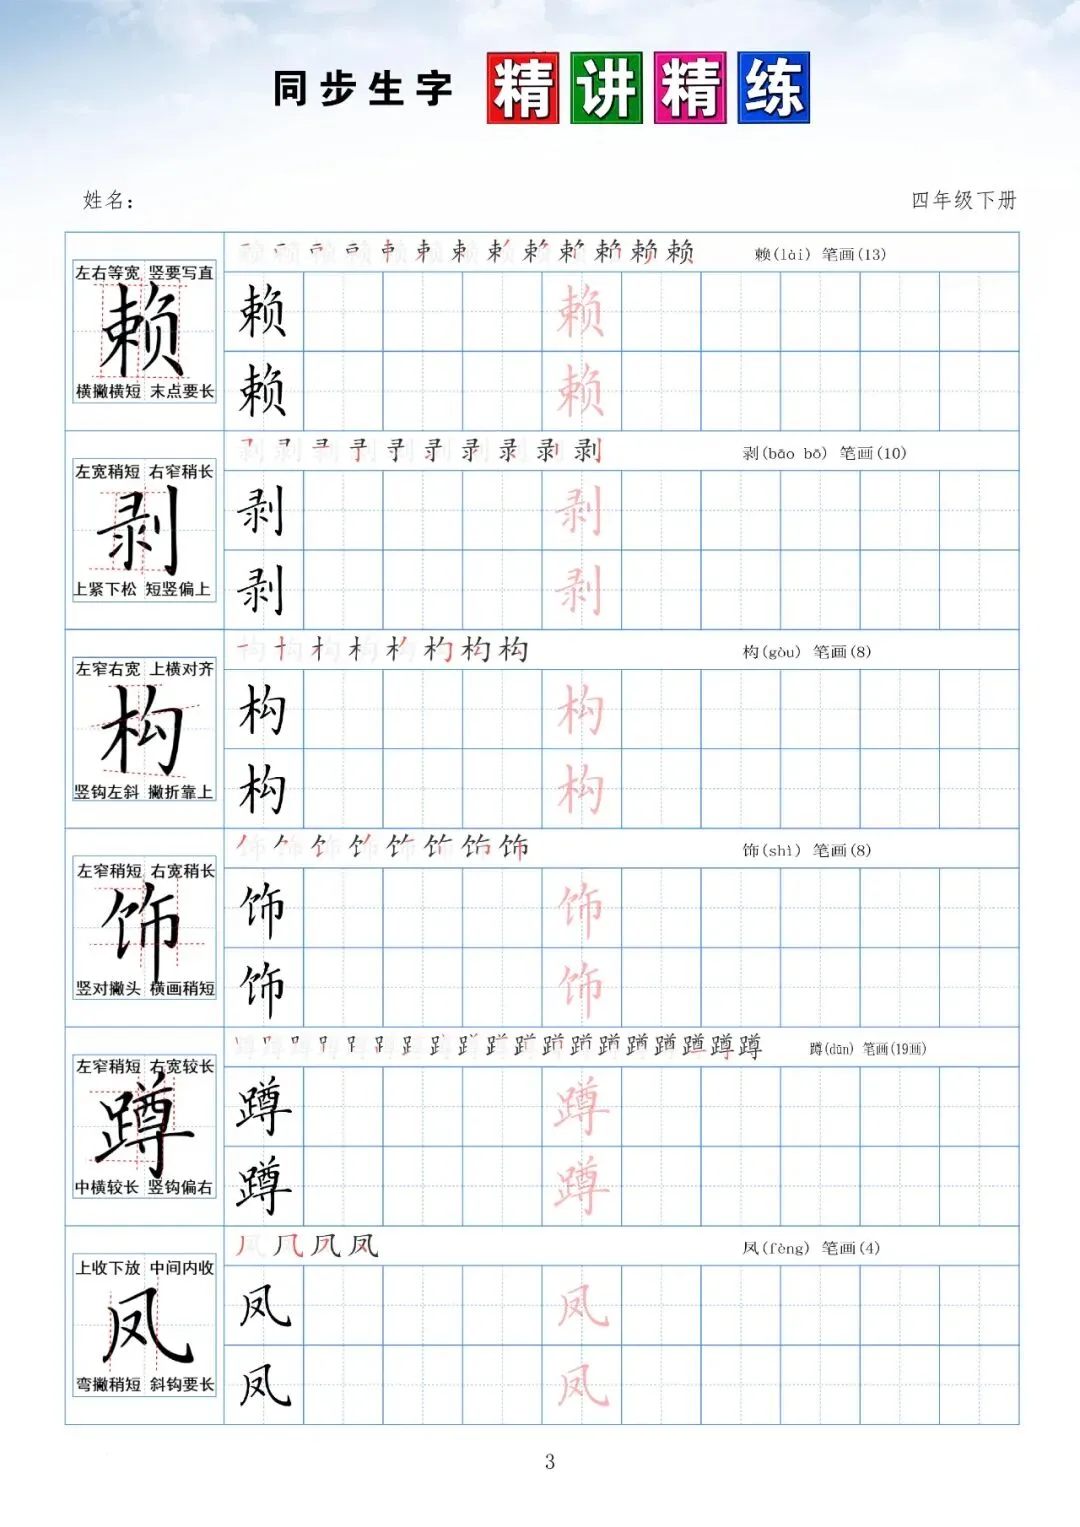 同步生字 精讲精练
姓名：
四年级下册
左右等宽 竖要写直
赖
横撇横短 末点要长
赖(lài) 笔画(13)
赖 赖
赖 赖
左宽稍短 右窄稍长
剥
上紧下松 短竖偏上
剥(bāo bō) 笔画(10)
剥 剥
剥 剥
左窄右宽 上横对齐
构
竖钩左斜 撇折靠上
构(gòu) 笔画(8)
构 构
构 构
左窄稍短 右宽稍长
饰
竖对撇头 横画稍短
饰(shì) 笔画(8)
饰 饰
饰 饰
左窄稍短 右宽较长
蹲
中横较长 竖钩偏右
蹲(dūn) 笔画(19画)
蹲 蹲
蹲 蹲
上收下放 中间内收
凤
弯撇稍短 斜钩要长
凤(fèng) 笔画(4)
凤 凤
凤 凤
3